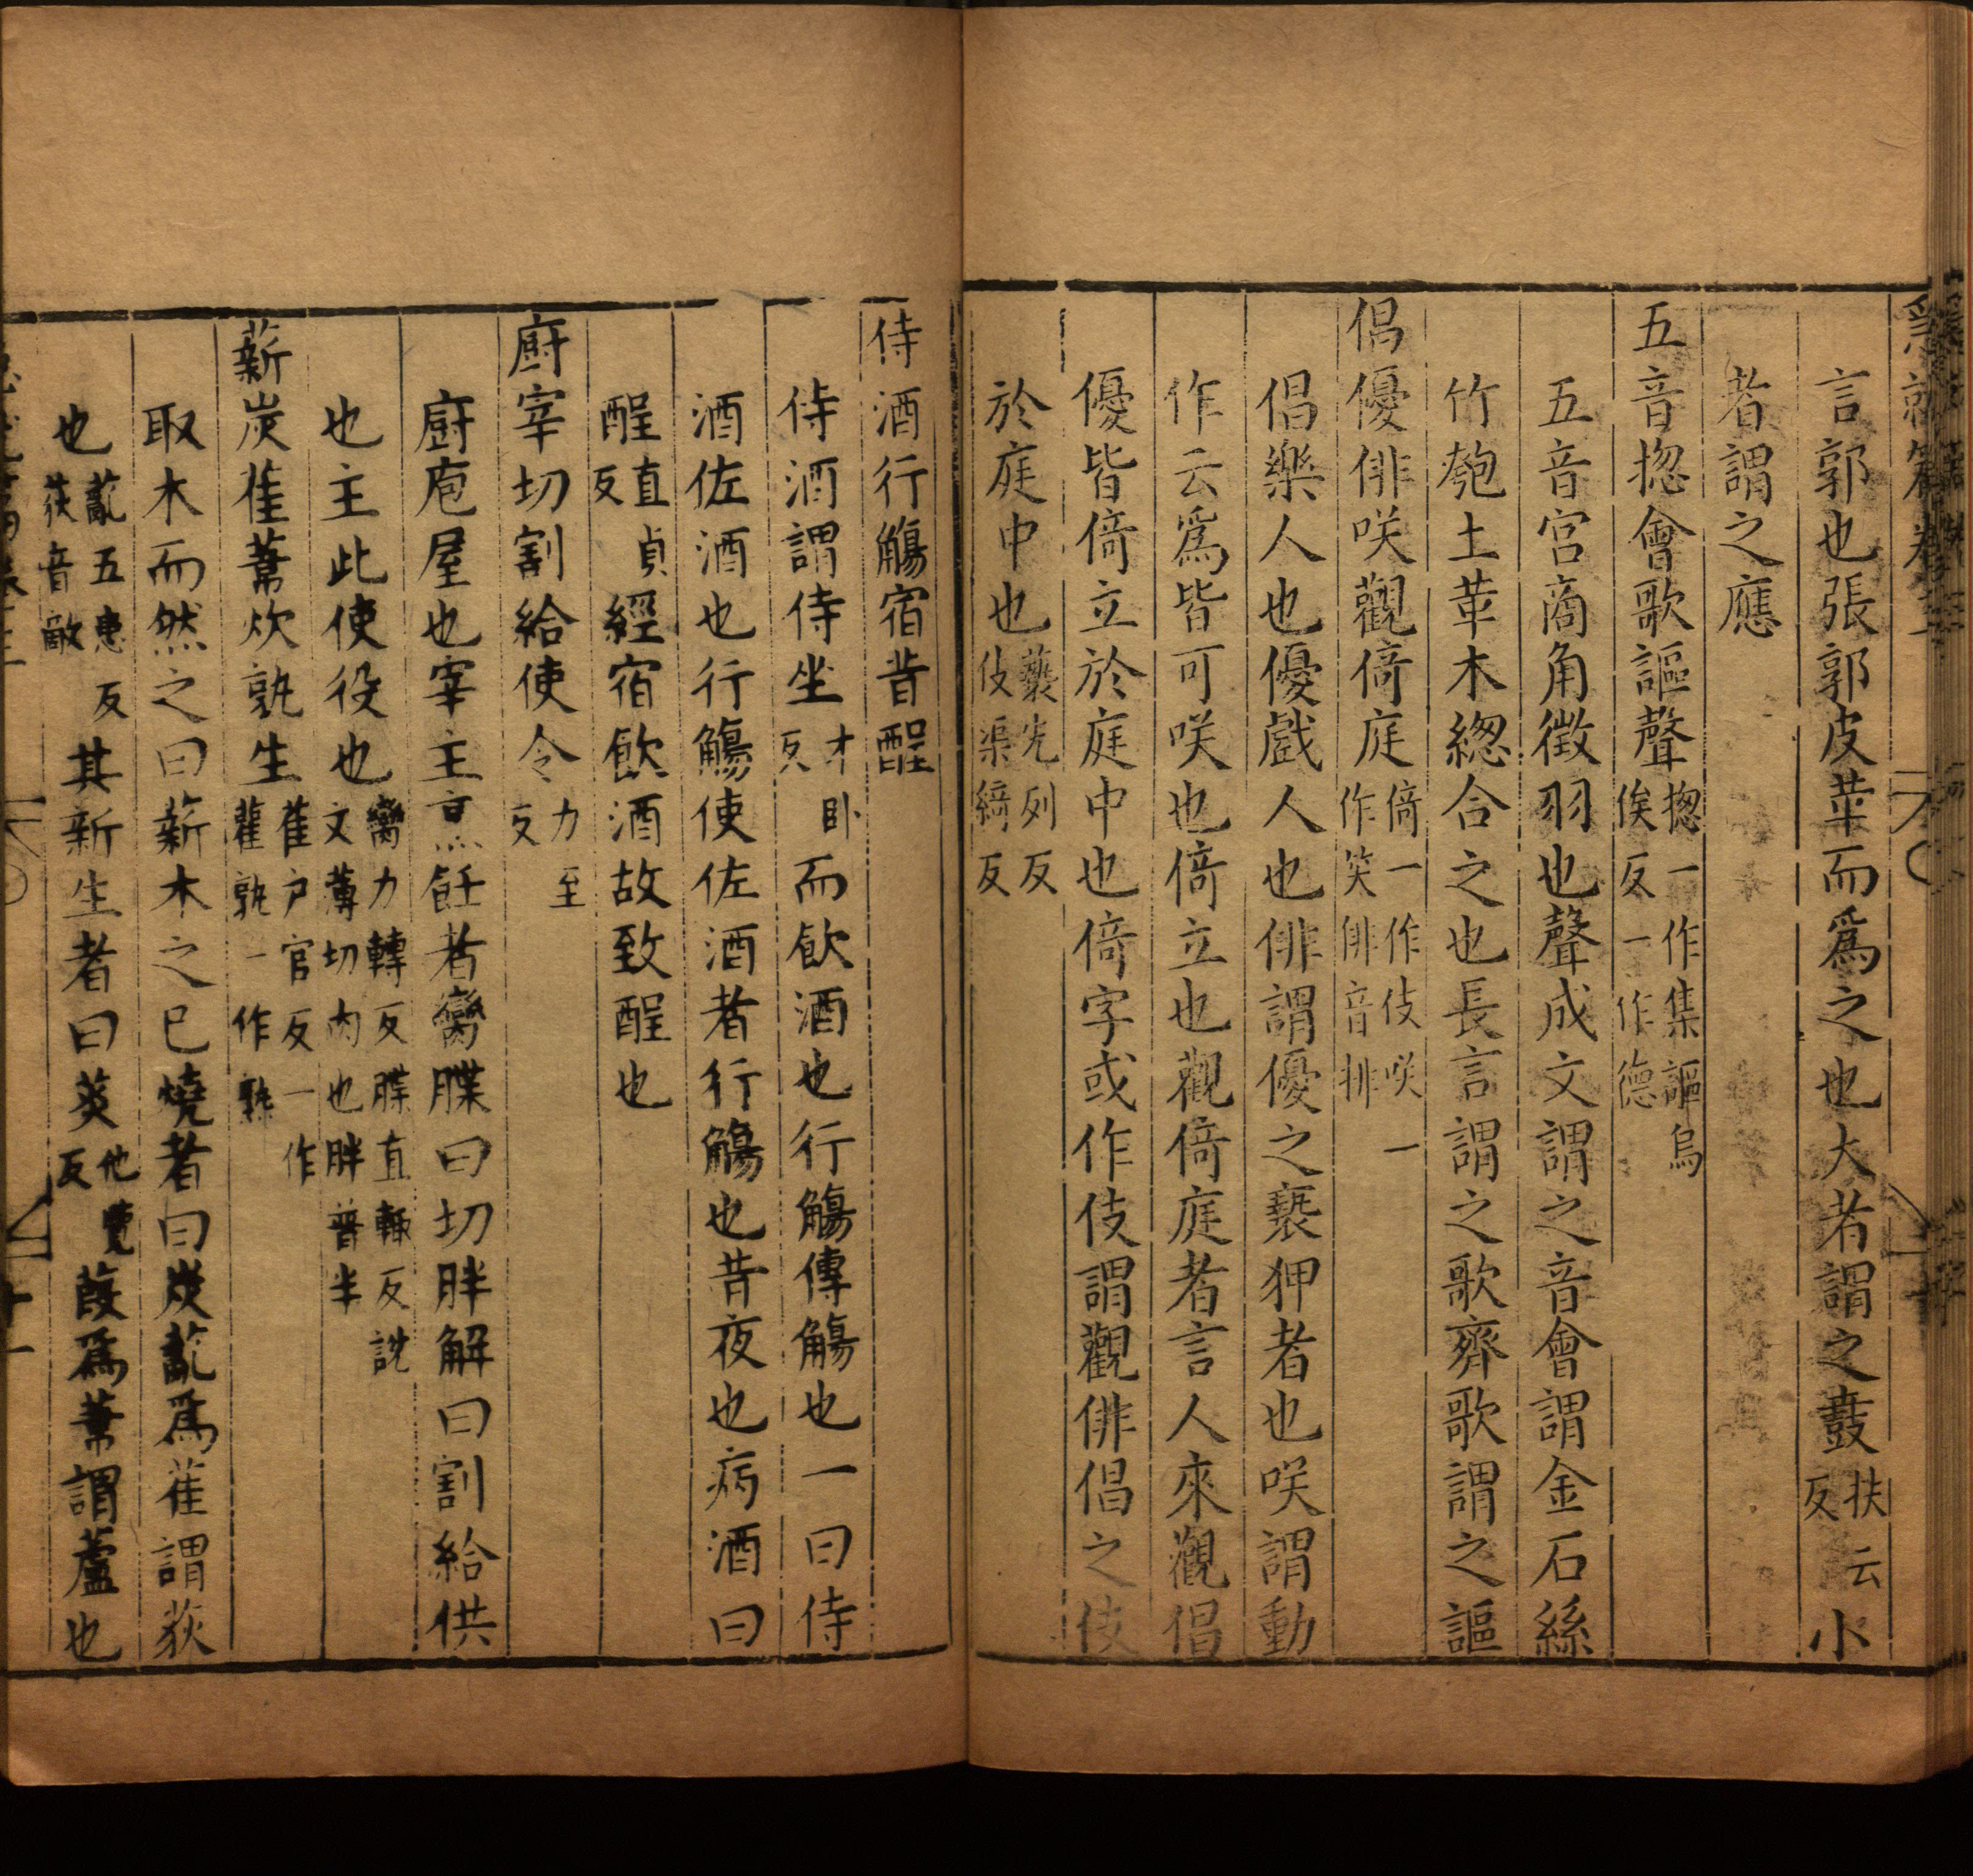 言郭也張郭皮革而爲之也大者謂之鼖扶云反小
者謂之應
五音揔會歌謳聲揔一作集謳烏侯反一作德
五音宮商角徵羽也聲成文謂之音會謂金石絲
竹匏土革木緫合之也長言謂之歌齊歌謂之謳
倡優俳咲觀倚庭倚一作伎咲一作笑俳音排
倡樂人也優戲人也俳謂優之褻狎者也咲謂動
作云爲皆可咲也倚立也觀倚庭者言人來觀倡
優皆倚立於庭中也倚字或作伎謂觀俳倡之伎
於庭中也褻先列反伎渠綺反
侍酒行觴宿昔酲
侍酒謂侍坐才卧反而飲酒也行觴傳觴也一曰侍
酒佐酒也行觴使佐酒者行觴也昔夜也病酒曰
酲直貞反經宿飲酒故致酲也
廚宰切割給使令力至反
廚庖屋也宰主烹飪者臠牒曰切胖解曰割給供
也主此使役也臠力轉反牒直輒反說文薄切肉也胖普半
薪炭萑葦炊孰生萑户官反一作雚孰一作熟
取木而然之曰薪木之已燒者曰炭薍爲萑謂荻
也薍五患反荻音敵其新生者曰菼他覽反葭爲葦謂蘆也